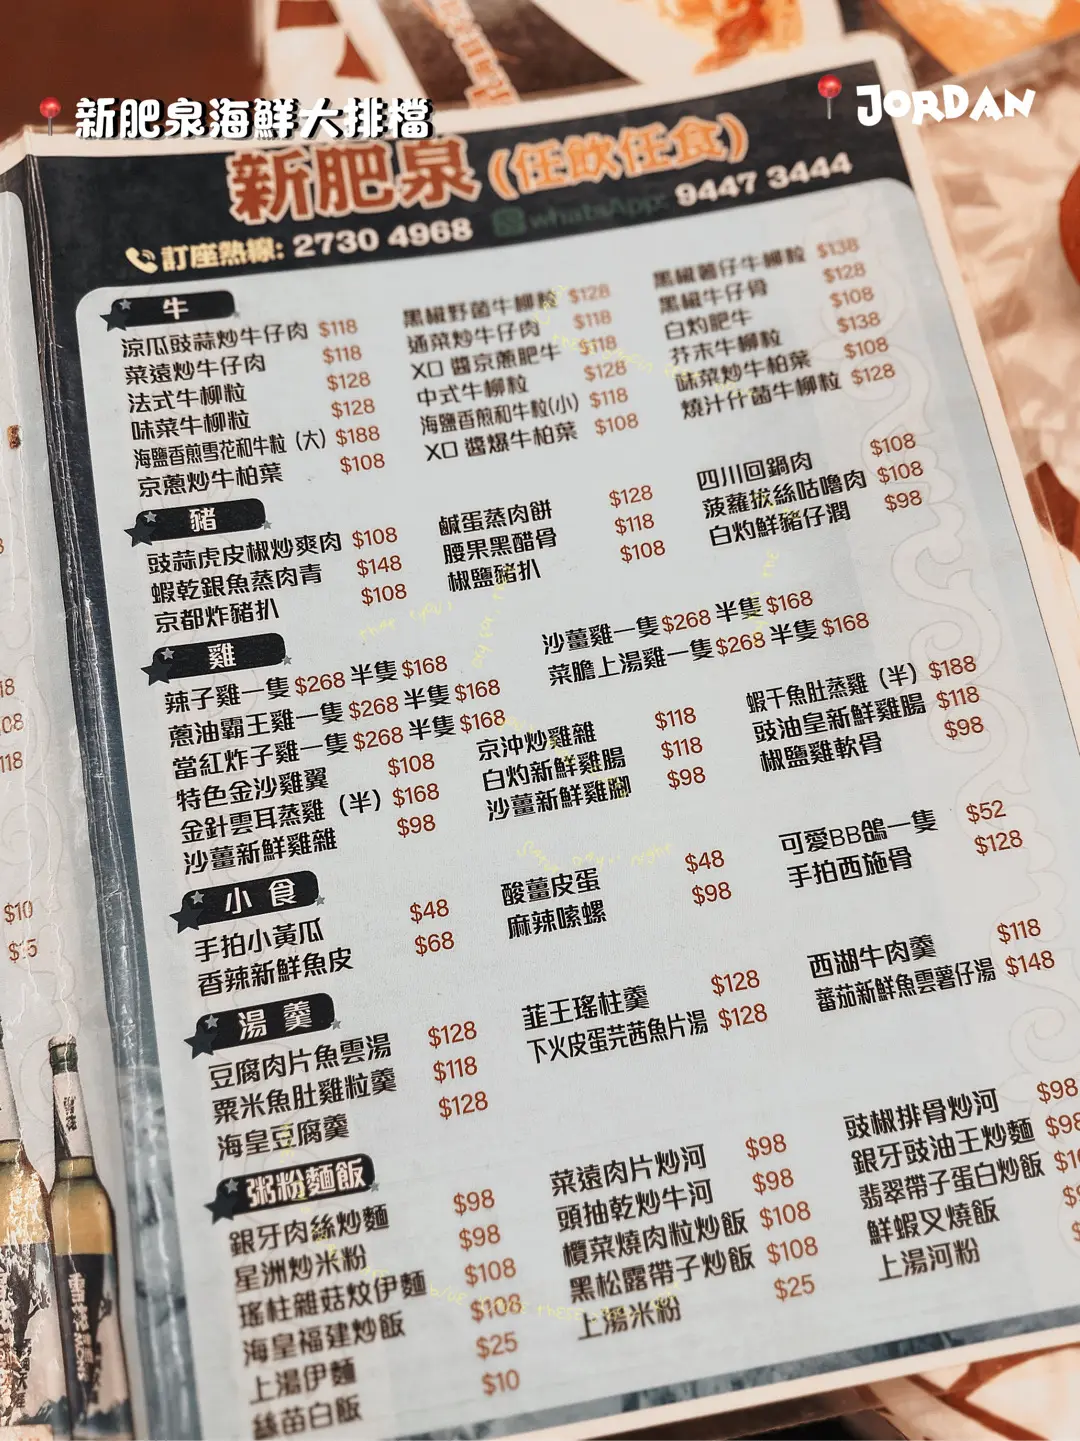 新肥泉海鮮大排檔
JORDAN
新肥泉(任飲任食)
訂座熱線: 2730 4968 WhatsApp: 9447 3444
牛
涼瓜豉蒜炒牛仔肉 $118
菜遠炒牛仔肉 $118
法式牛柳粒 $128
味菜牛柳粒 $128
海鹽香煎雪花和牛粒 (大) $188
京蔥炒牛柏葉 $108
黑椒野菌牛柳粒 $128
通菜炒牛仔肉 $118
XO 醬京蔥肥牛 $118
中式牛柳粒 $128
海鹽香煎和牛粒(小) $118
XO 醬爆牛柏葉 $108
黑椒薯仔牛柳粒 $138
黑椒牛仔骨 $128
白灼肥牛 $108
芥末牛柳粒 $138
味菜炒牛柏葉 $108
燒汁什菌牛柳粒 $128
豬
豉蒜虎皮椒炒爽肉 $108
蝦乾銀魚蒸肉青 $148
京都炸豬扒 $108
鹹蛋蒸肉餅 $128
腰果黑醋骨 $118
椒鹽豬扒 $108
四川回鍋肉 $108
菠蘿拔絲咕嚕肉 $108
白灼鮮豬仔潤 $98
雞
辣子雞一隻 $268 半隻 $168
蔥油霸王雞一隻 $268 半隻 $168
當紅炸子雞一隻 $268 半隻 $168
特色金沙雞翼 $108
金針雲耳蒸雞 (半) $168
沙薑新鮮雞雜 $98
沙薑雞一隻 $268 半隻 $168
菜膽上湯雞一隻 $268 半隻 $168
京沖炒雞雜 $118
白灼新鮮雞腸 $118
沙薑新鮮雞腳 $98
蝦干魚肚蒸雞 (半) $188
豉油皇新鮮雞腸 $118
椒鹽雞軟骨 $98
小食
手拍小黃瓜 $48
香辣新鮮魚皮 $68
酸薑皮蛋 $48
麻辣嗦螺 $98
可愛BB鴿一隻 $52
手拍西施骨 $128
湯羹
豆腐肉片魚雲湯 $128
粟米魚肚雞粒羹 $118
海皇豆腐羹 $128
韮王瑤柱羹 $128
下火皮蛋芫茜魚片湯 $128
西湖牛肉羹 $118
蕃茄新鮮魚雲薯仔湯 $148
粥粉麵飯
銀牙肉絲炒麵 $98
星洲炒米粉 $98
瑤柱雜菇炆伊麵 $108
海皇福建炒飯 $108
上湯伊麵 $25
絲苗白飯 $10
菜遠肉片炒河 $98
頭抽乾炒牛河 $98
欖菜燒肉粒炒飯 $108
黑松露帶子炒飯 $108
上湯米粉 $25
豉椒排骨炒河 $98
銀牙豉油王炒麵 $98
翡翠帶子蛋白炒飯
鮮蝦叉燒飯
上湯河粉